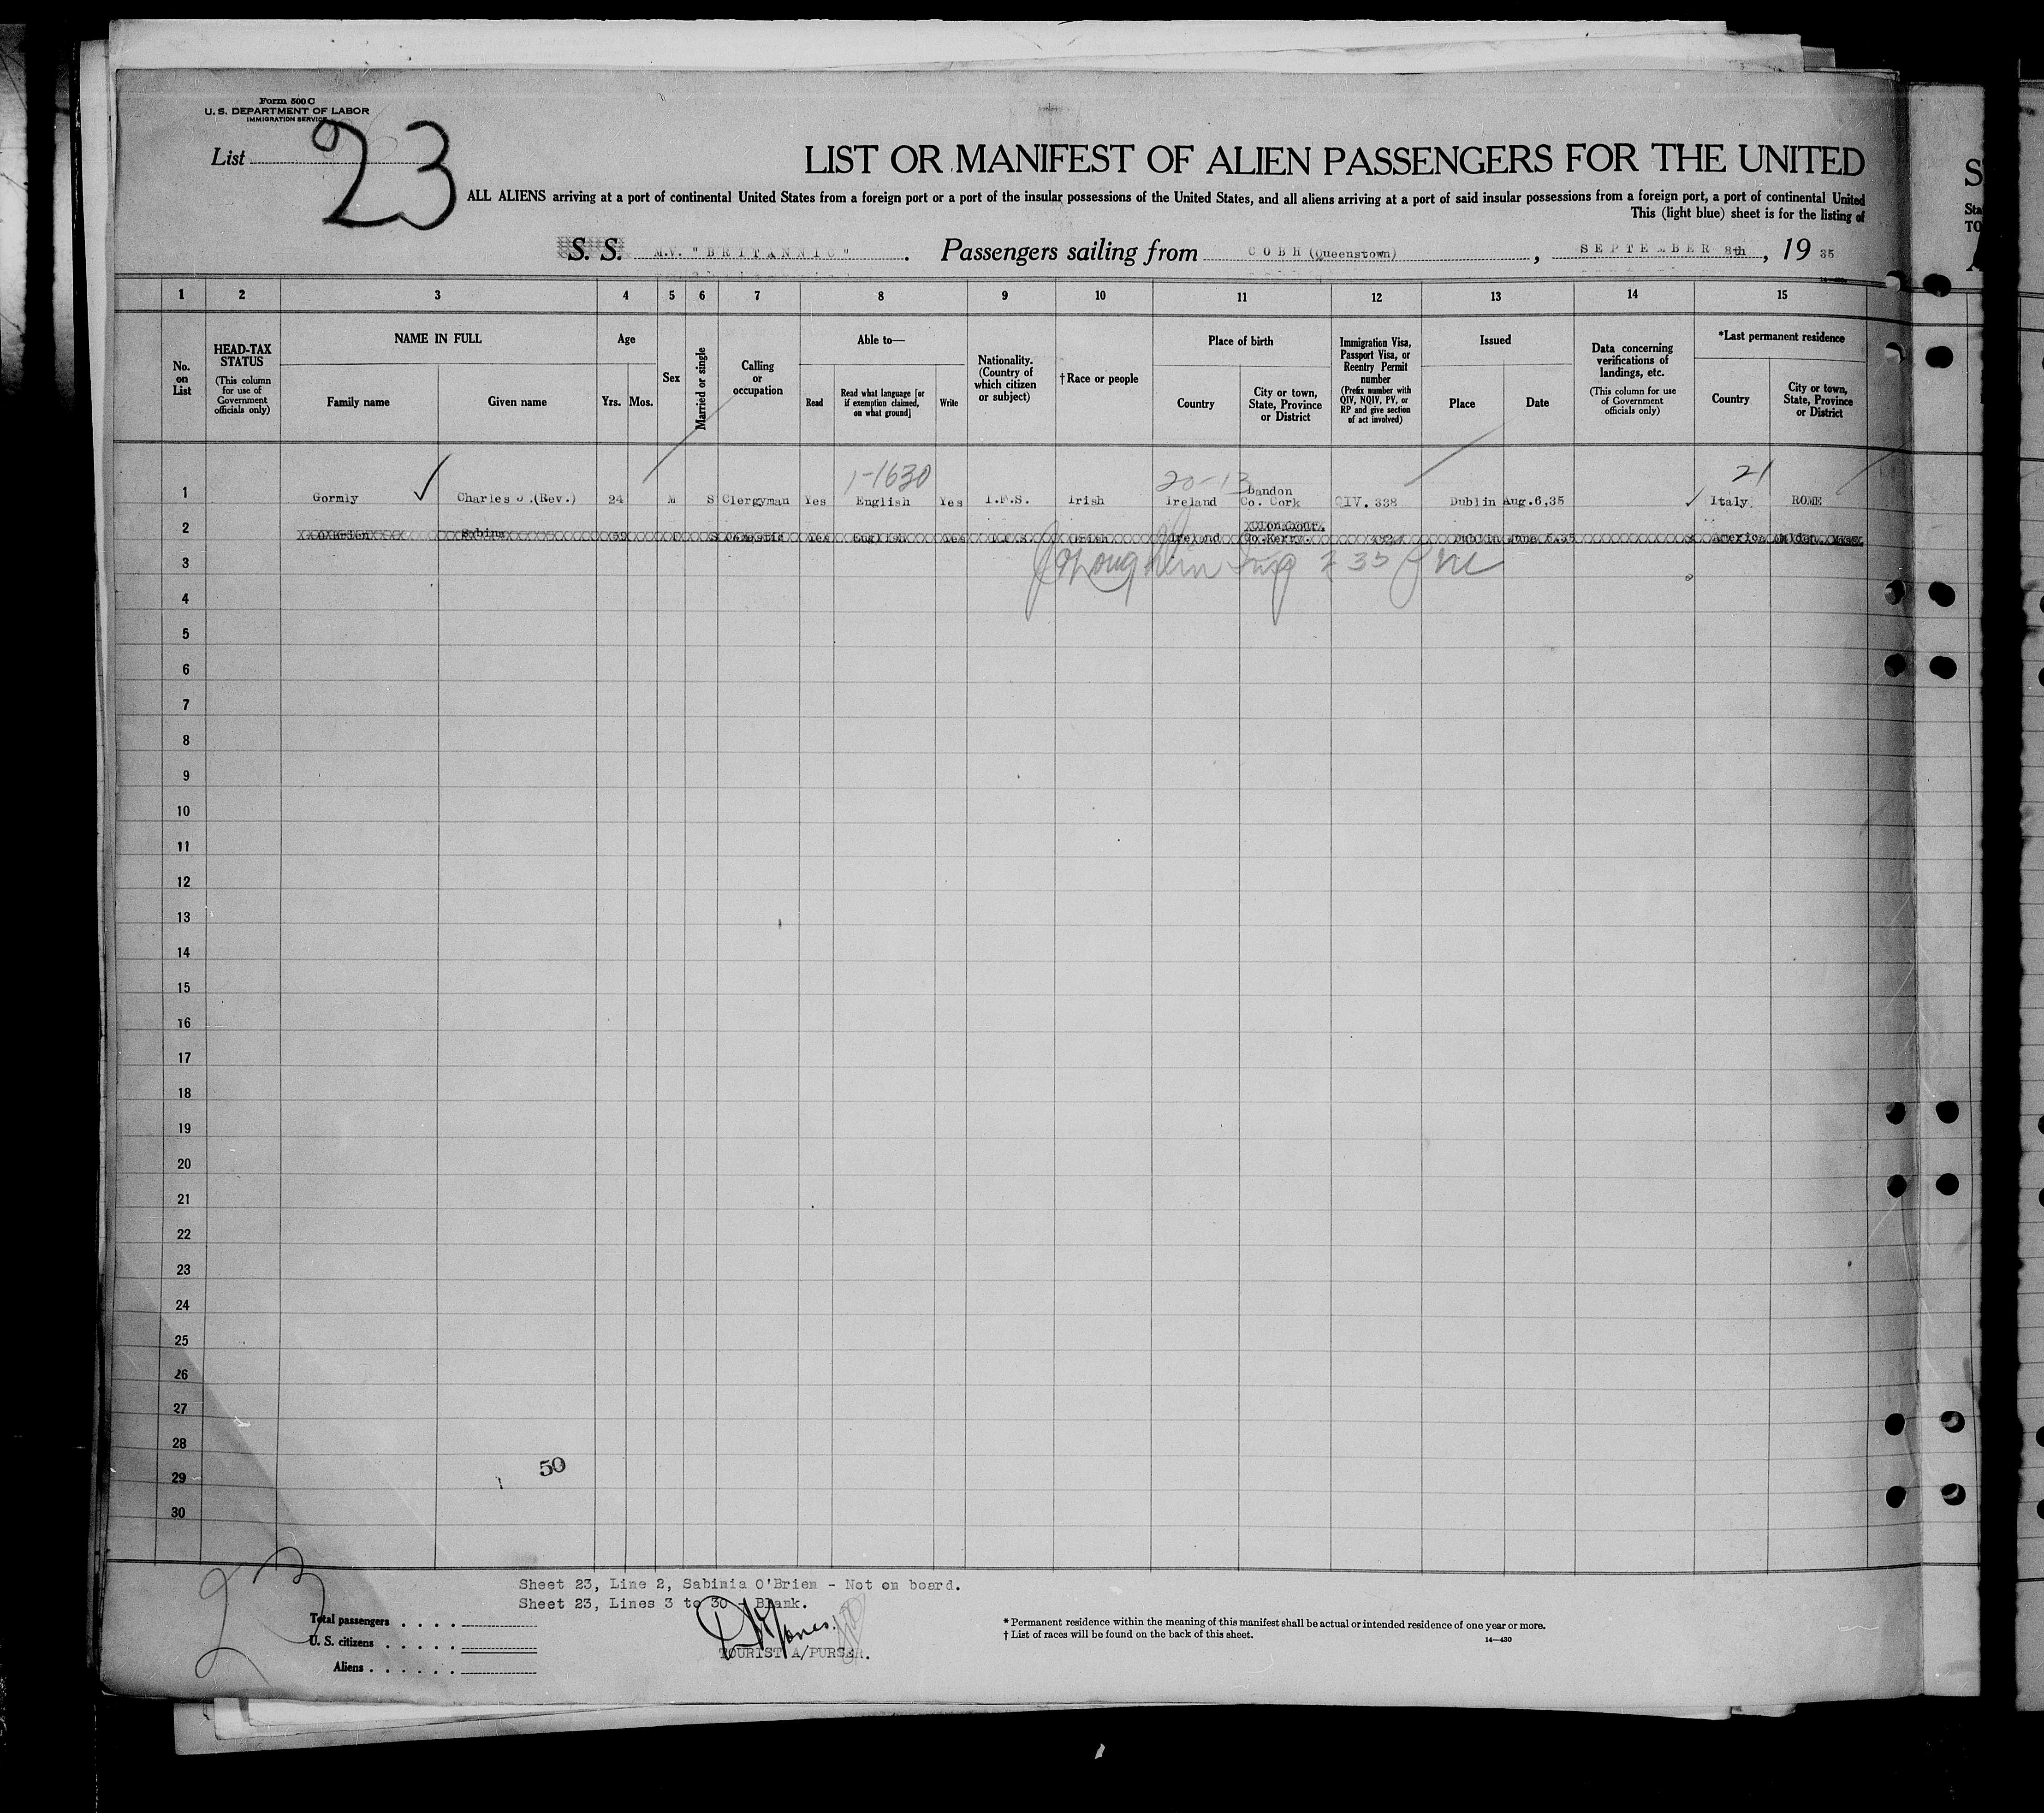 Form 500 C
U. S. DEPARTMENT OF LABOR
IMMIGRATION SERVICE
List 23
LIST OR MANIFEST OF ALIEN PASSENGERS FOR THE UNITED
ALL ALIENS arriving at a port of continental United States from a foreign port or a port of the insular possessions of the United States, and all aliens arriving at a port of said insular possessions from a foreign port, a port of continental United
This (light blue) sheet is for the listing of
S. S. M.V. "BRITANNIC". Passengers sailing from COBH (Queenstown), SEPTEMBER 8th, 19 35
1 2 3 4 5 6 7 8 9 10 11 12 13 14 15
No. on List
HEAD-TAX STATUS (This column for use of Government officials only)
NAME IN FULL
Family name
Given name
Age
Yrs. Mos.
Sex
Married or single
Calling or occupation
Able to—
Read
Read what language [or if exemption claimed, on what ground]
Write
Nationality. (Country of which citizen or subject)
†Race or people
Place of birth
Country
City or town, State, Province or District
Immigration Visa, Passport Visa, or Reentry Permit number (Prefix number with QIV, NQIV, PV, or RP and give section of act involved)
Issued
Place
Date
Data concerning verifications of landings, etc. (This column for use of Government officials only)
*Last permanent residence
Country
City or town, State, Province or District
1-1630 20-13 21
1 Gormly Charles J.(Rev.) 24 M S Clergyman Yes English Yes I.F.S. Irish Ireland Bandon Co. Cork QIV. 338 Dublin Aug.6,35 Italy ROME
2 O'Brien Sabina 39 F S Domestic Yes English Yes I.F.S. Irish Ireland Co.Kerry. Dublin June 5.35 America Malden. Mass.
3
4
5
6
7
8
9
10
11
12
13
14
15
16
17
18
19
20
21
22
23
24
25
26
27
28
29
30
50
23
Sheet 23, Line 2, Sabinia O'Brien - Not on board.
Sheet 23, Lines 3 to 30 - Blank.
Total passengers
U. S. citizens
Aliens
Jones.
TOURIST A/PURSER.
* Permanent residence within the meaning of this manifest shall be actual or intended residence of one year or more.
† List of races will be found on the back of this sheet.
14—430